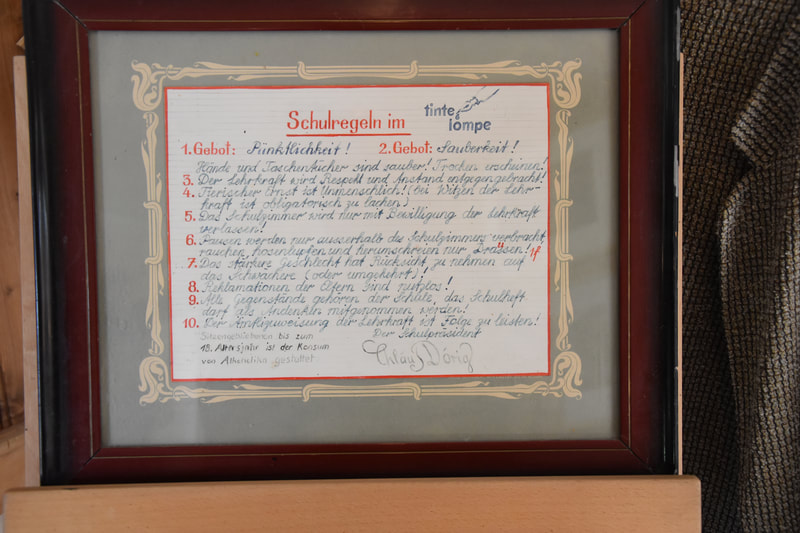 Schulregeln im tinte lompe
1. Gebot: Pünktlichkeit! 2. Gebot: Sauberkeit!
Hände und Taschentücher sind sauber! Trocken erscheinen!
3. Der Lehrkraft wird Respekt und Anstand entgegen gebracht!
4. Tierischer Ernst ist Unmenschlich! (bei Witzen der Lehr-
kraft ist obligatorisch zu lachen)
5. Das Schulzimmer wird nur mit Bewilligung der Lehrkraft
verlassen!
6. Pausen werden nur ausserhalb des Schulzimmers verbracht,
rauchen, hosenlupfen und herumschreien nur Drässen!
7. Das stärkere Geschlecht hat Rücksicht zu nehmen auf
das Schwächere (oder umgekehrt)!
8. Reklamationen der Eltern sind nutzlos!
9. Alle Gegenstände gehören der Schule, das Schulheft
darf als Andenken mitgenommen werden!
10. Der Anweisung der Lehrkraft ist Folge zu leisten!
bis zum Der Schulpräsident
18. Altersjahr ist der Konsum
von gestattet
Dörig